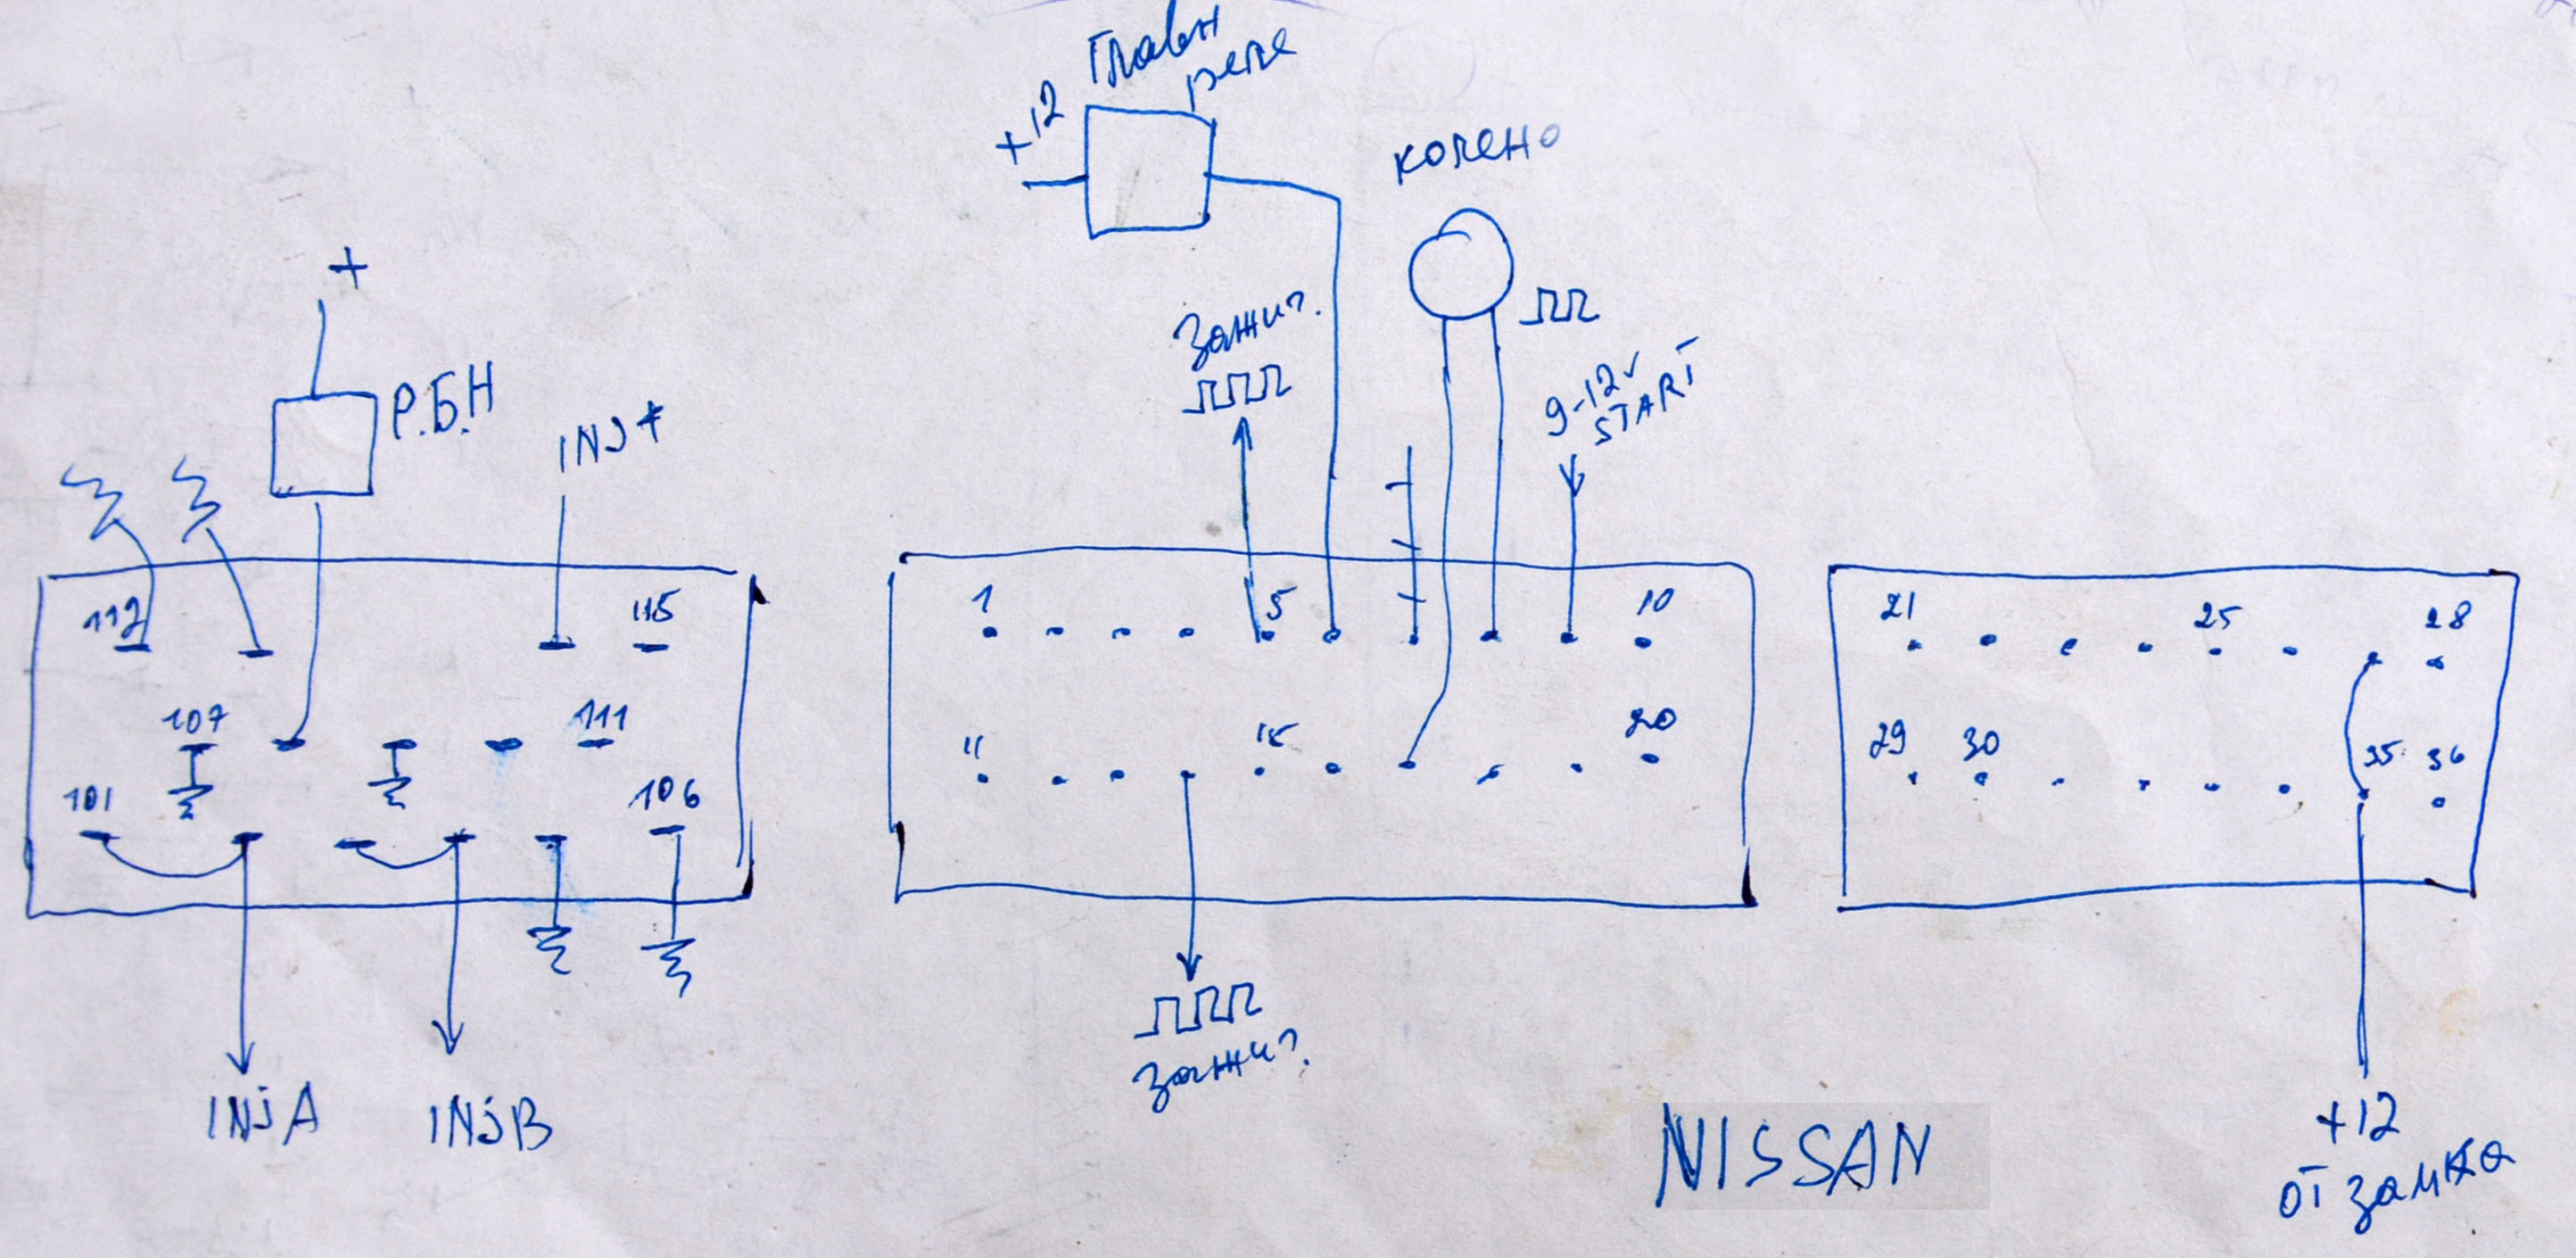 Главн
реле
+12
колено
+
Зажиг.
9-12v
START
Р.Б.Н
INJ
112
115
107
111
101
106
1
5
10
11
15
20
21
25
28
29
30
35
36
INJA
INJB
зажиг.
NISSAN
+12
от замка